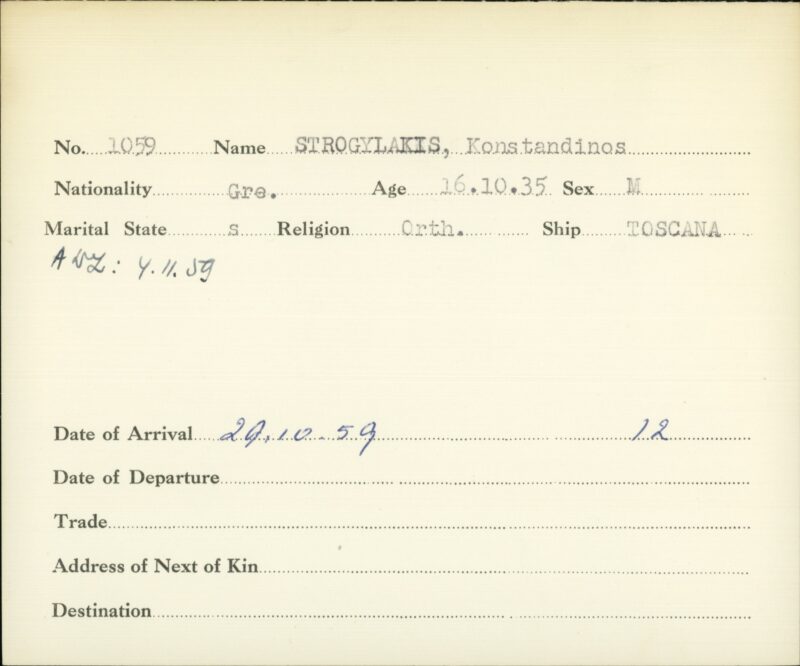 No. 1059 Name STROGYLAKIS, Konstandinos
Nationality Gre. Age 16.10.35 Sex M
Marital State s Religion Orth. Ship TOSCANA
AWZ: 4.11.59
Date of Arrival 29.10.59 12
Date of Departure
Trade
Address of Next of Kin
Destination